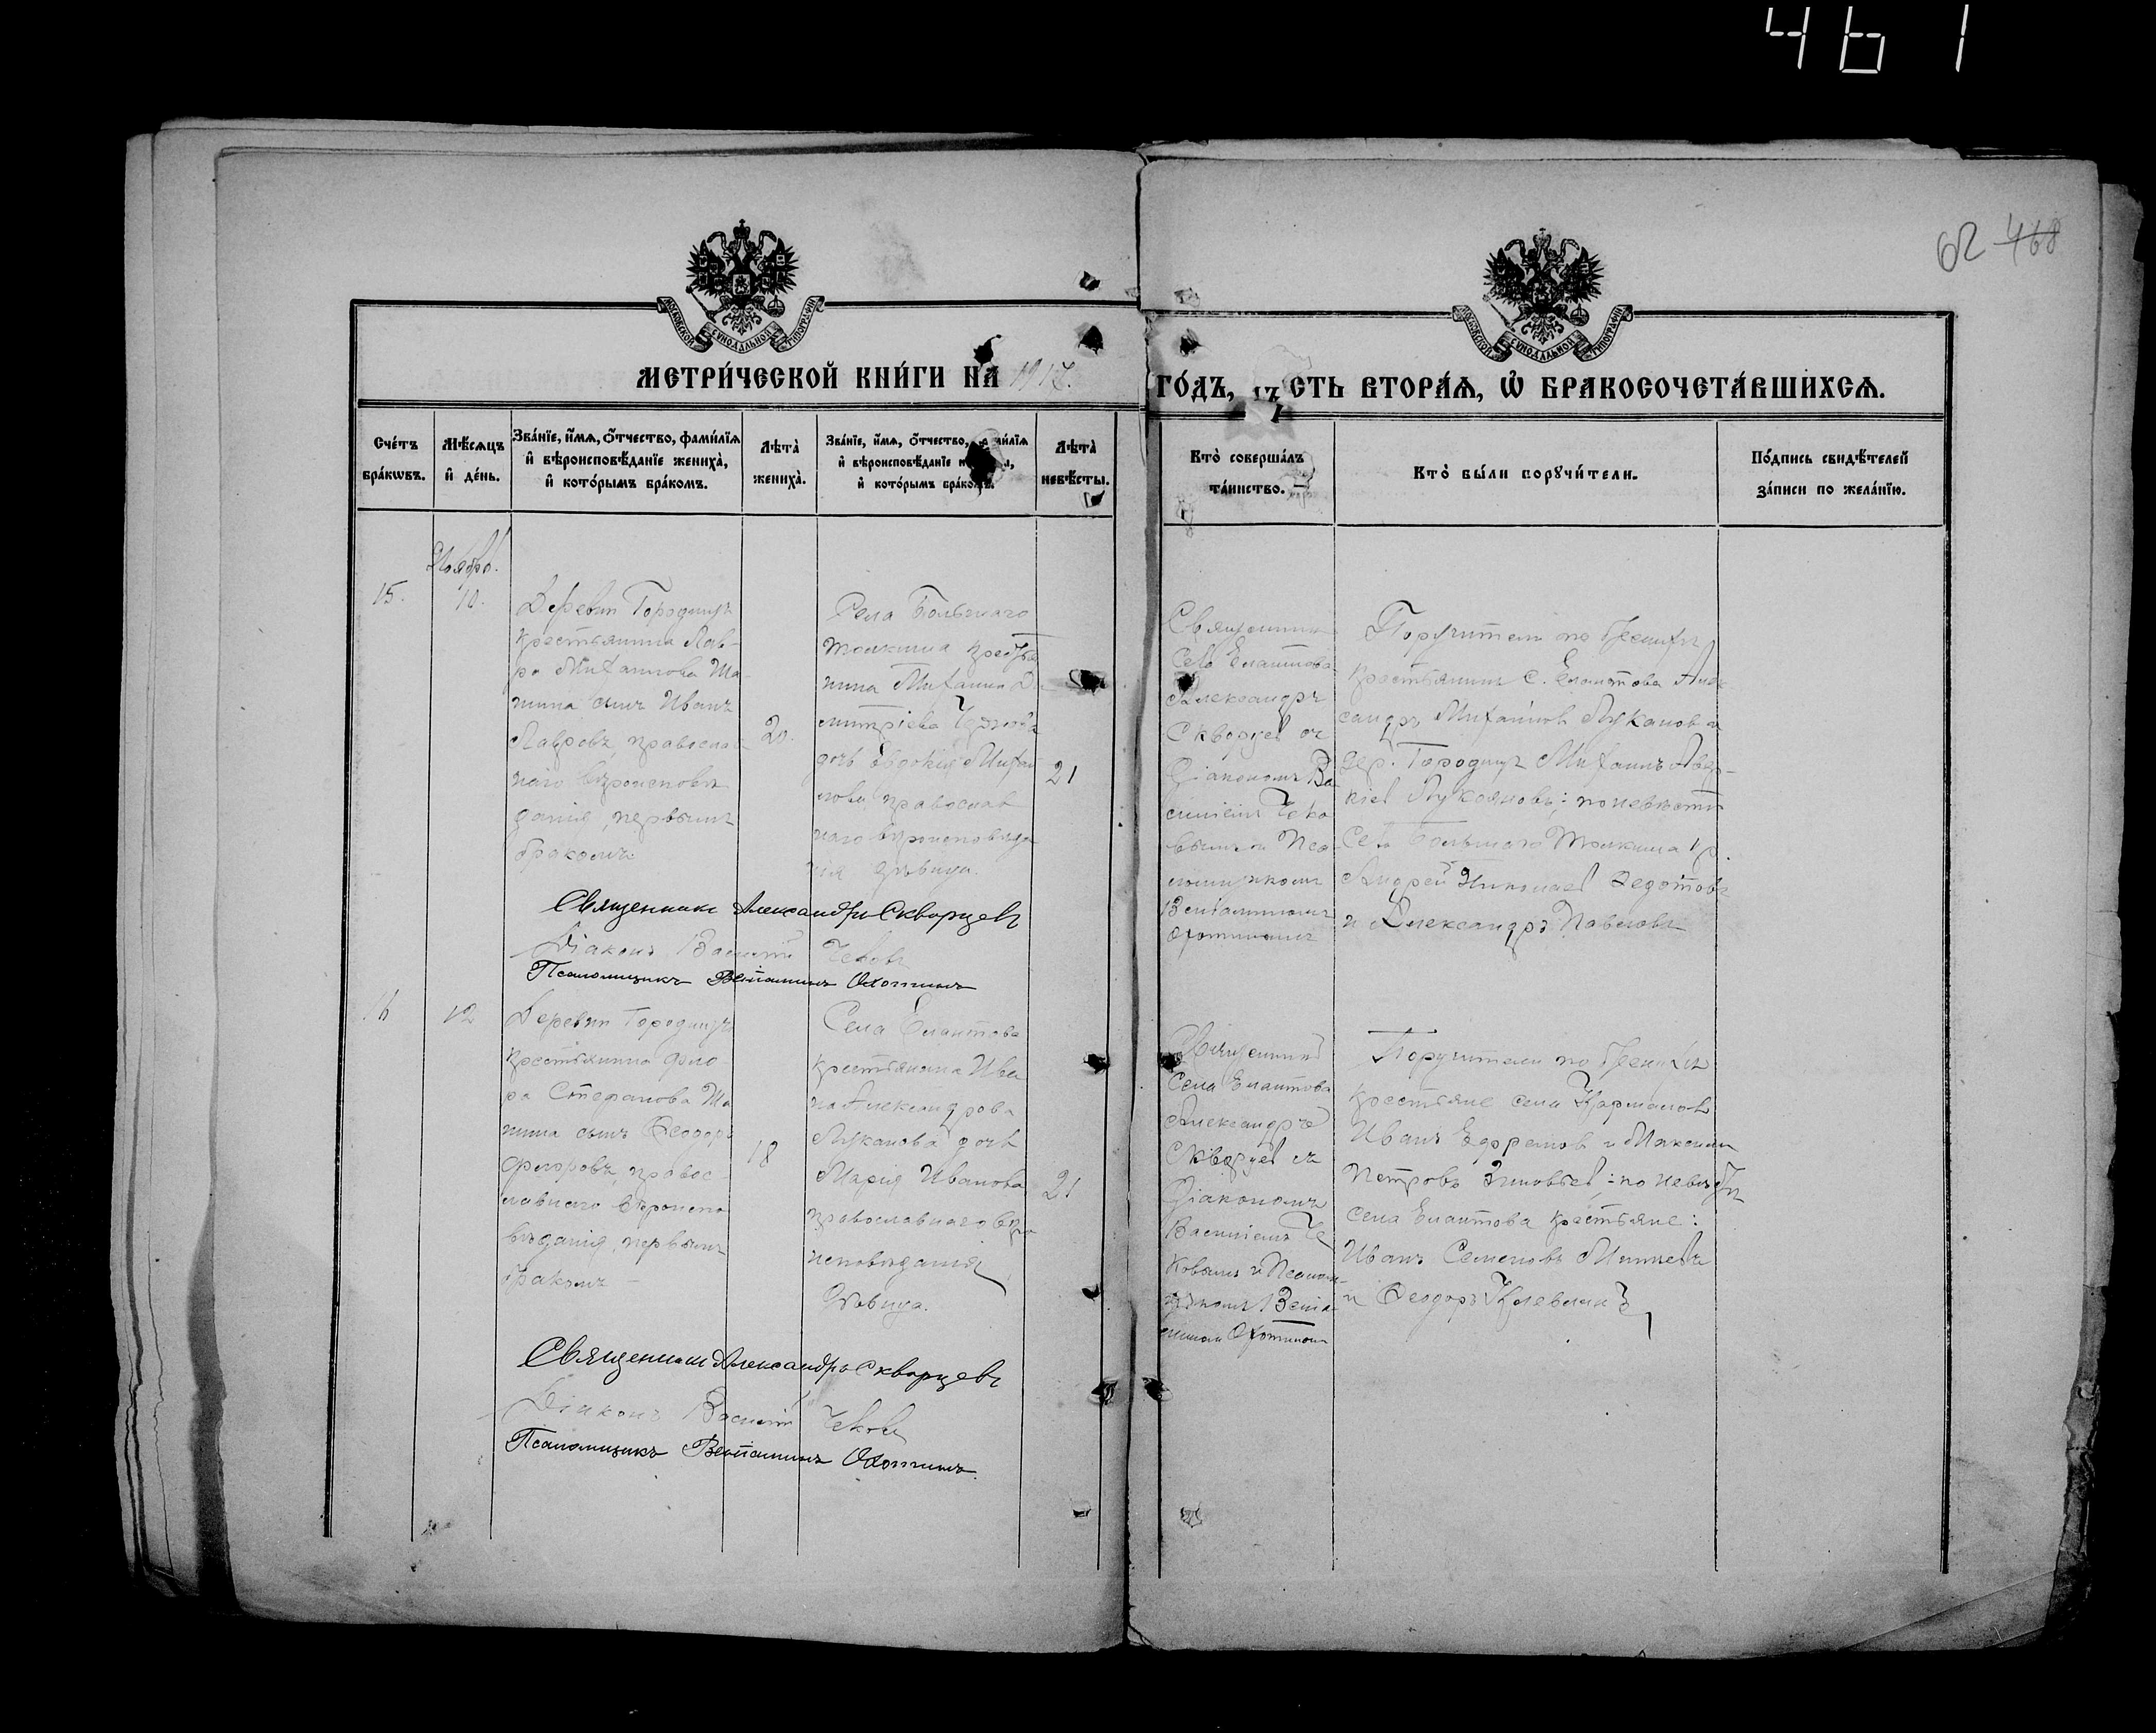 461
62 468
МОСКОВСКОЙ СѴНОДАЛЬНОЙ ТИПОГРАФІИ
МОСКОВСКОЙ СѴНОДАЛЬНОЙ ТИПОГРАФІИ
МЕТРИ́ЧЕСКОЙ КНИ́ГИ НА 1917.
ГО́ДЪ, СТЬ ВТОРА́Я, Ѡ҆ БРАКОСОЧЕТА́ВШИХСЯ.
Сче́тъ бра́кѡвъ.
Мѣ́сяцъ и҆ де́нь.
Зва́нїе, и҆́мя, ѻ҆́тчество, фами́лїя
и҆ вѣроисповѣ́данїе жениха̀,
и҆ кото́рымъ бра́комъ.
Лѣта̀ жениха̀.
Зва́нїе, и҆́мя, ѻ҆́тчество,
и҆ вѣроисповѣ́данїе
и҆ кото́рымъ бра́комъ.
Лѣта̀ невѣ́сты.
Кто̀ соверша́лъ та́инство.
Кто̀ бы́ли порꙋчи́тели.
По́дпись свидѣ́телей за́писи по жела́нїю.
15.
Ноябрь.
10.
Деревни Городищъ
крестьянина Лав-
ра Михаилова Ша-
нина сынъ Иванъ
Лавровъ, православ
наго вѣроисповѣ
данія, первымъ
бракомъ.
20.
Села Большаго
Толкиша крестья
нина Михаила Ди
митріева
дочь Евдокія Михаи
лова, православ
наго вѣроисповѣда
нія дѣвица.
21
Священникъ
села Елантова
Александръ
Скворцевъ съ
Діакономъ Ва
силіемъ Чеко
вымъ и Пса
ломщикомъ
Веніаминомъ
Охотинымъ
Поручители по женихѣ
крестьянинъ с. Елантова Алек
сандръ Михаиловъ Лукановъ и
дер. Городищъ Михаилъ Авер-
кіев Лукояновъ; по невѣстѣ
Села Большого Толкиша кр.
Андрей Николаевъ Федотовъ
и Александръ Павловъ
Священникъ Александръ Скворцевъ
Діаконъ Василій Чековъ
Псаломщикъ Веніаминъ Охотинъ
16
12
Деревни Городищъ
крестьянина Фло
ра Стефанова Ша
нина сынъ Ѳеодоръ
Флоровъ, правос-
лавнаго вѣроиспо
вѣданія, первымъ
бракомъ
18
Села Елантова
крестьянина Ива
на Александрова
Луканова дочь
Марія Иванова
православнаго вѣро
исповѣданія,
дѣвица.
21
Священникъ
села Елантова
Александръ
Скворцев съ
Діакономъ
Василіемъ Че
ковымъ и Псалом-
щикомъ Веніа-
миномъ Охотинымъ
Поручители по женихѣ
крестьяне села
Иванъ Ефремовъ и Максимъ
Петровъ Зиновьев; по невѣстѣ
села Елантова крестьяне:
Иванъ Семеновъ
и Ѳеодоръ
Священникъ Александръ Скворцевъ
Діаконъ Василій Чековъ
Псаломщикъ Веніаминъ Охотинъ.